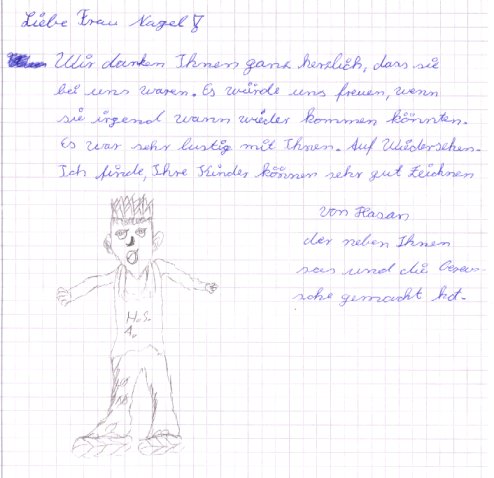 Liebe Frau Nagel!
Wir danken Ihnen ganz herzlich, dass sie
bei uns waren. Es würde uns freuen, wenn
sie irgend wann wieder kommen könnten.
Es war sehr lustig mit Ihnen. Auf Wiedersehen.
Ich finde, Ihre Kinder können sehr gut Zeichnen
von Hasan
der neben Ihnen
sas und die
gemacht hat.
H.S.
A.